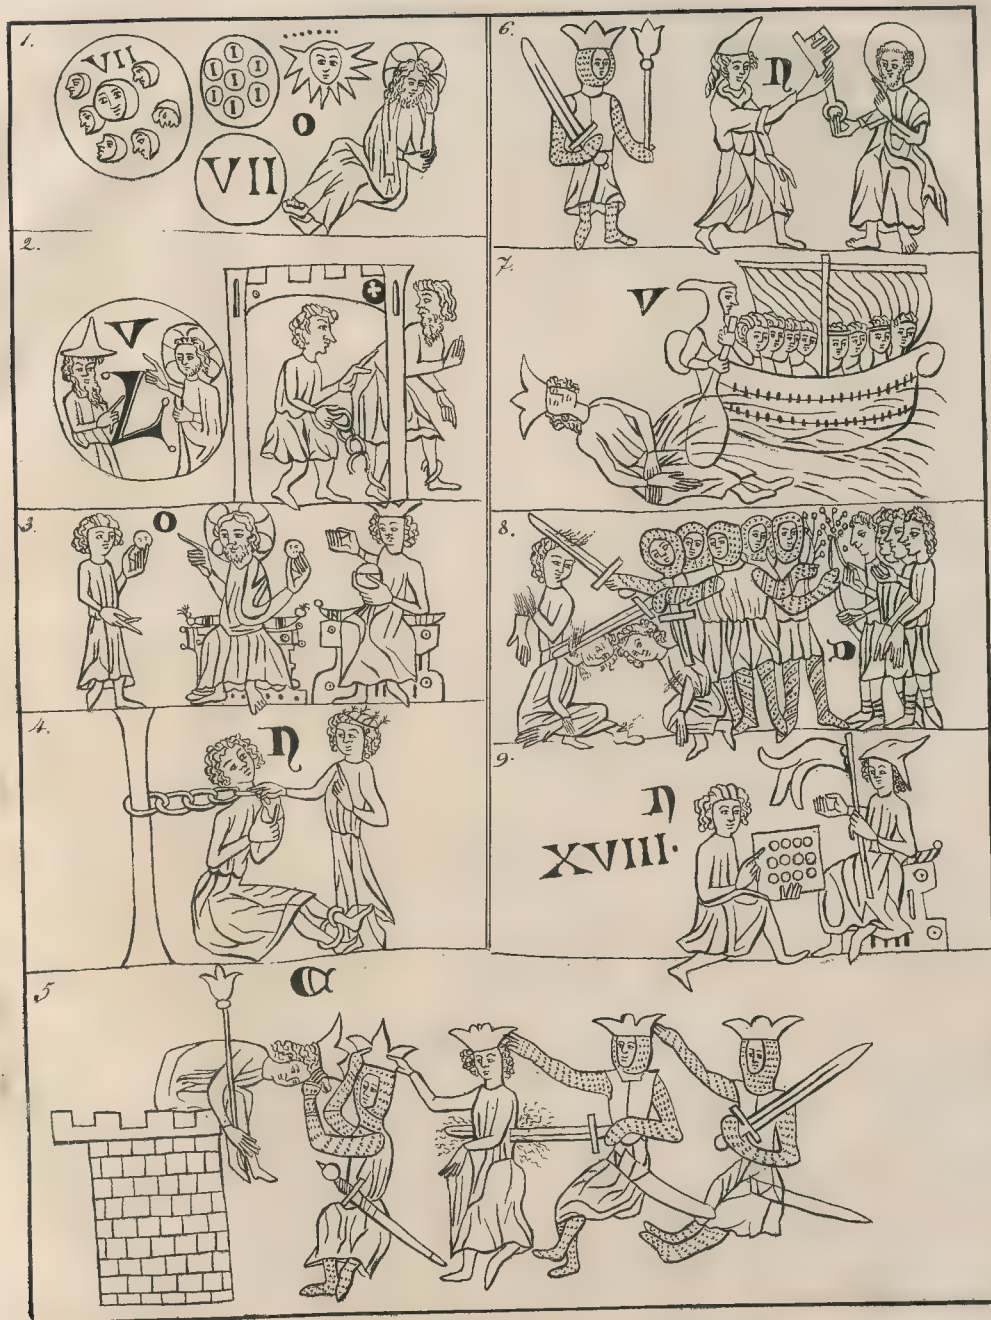 1.
VII
I
I I
I
I I
I
O
VII
2.
V
3.
O
4.
n
5
C
6.
n
7.
V
8.
9.
n
XVIII.